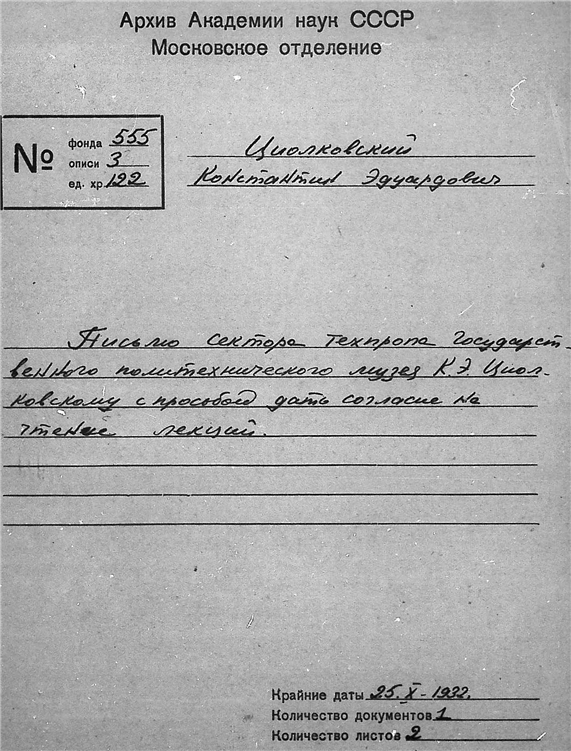 Архив Академии наук СССР
Московское отделение
№
фонда 555
описи 3
ед. хр. 122
Циолковский
Константин Эдуардович
Письмо сектора техпропа Государст-
венного политехнического музея К.Э. Циол-
ковскому с просьбой дать согласие на
чтение лекций.
Крайние даты 25.X-1932.
Количество документов 1
Количество листов 2